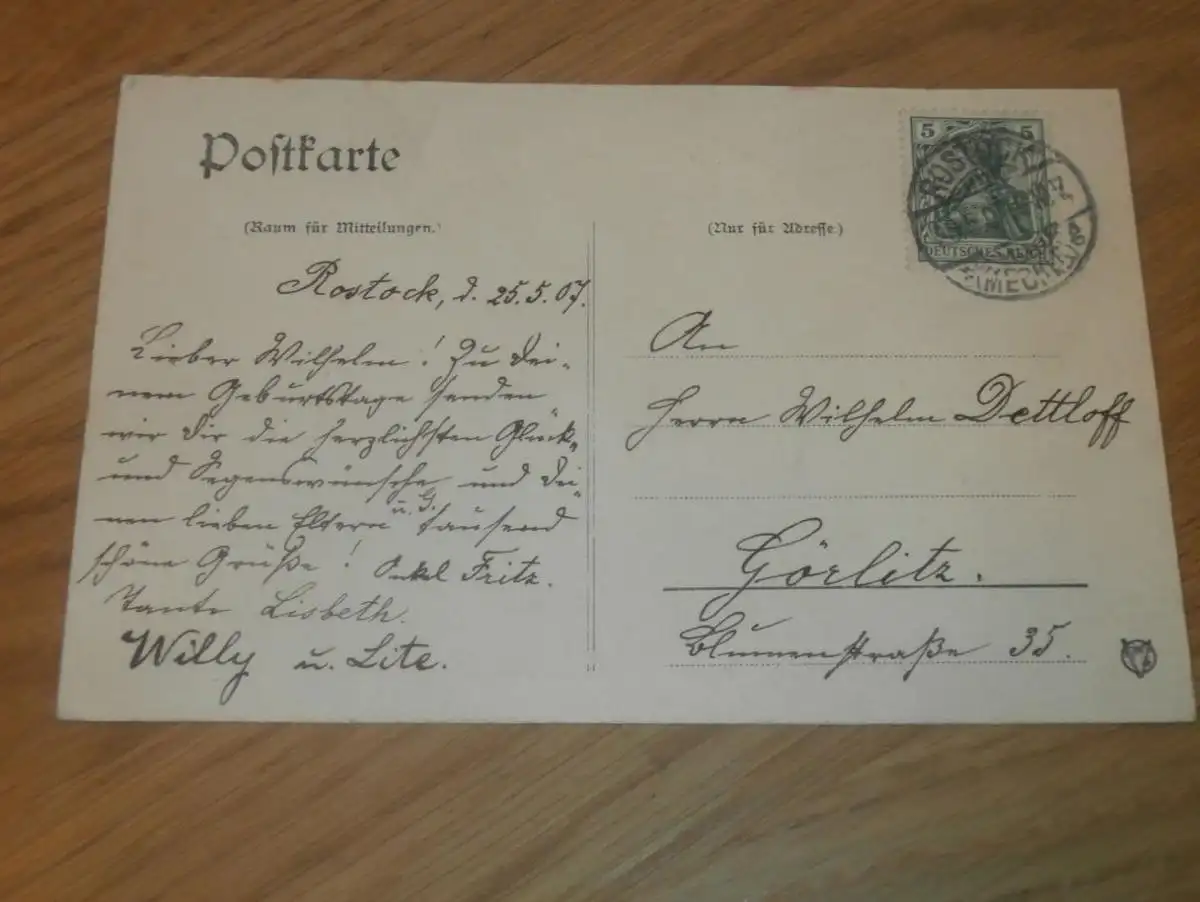 Postkarte
(Raum für Mitteilungen.)
Rostock, d. 25.5.07.
Lieber Wilhelm! Zu Dei-
nem Geburtstage senden
wir Dir die herzlichsten Glück-
und Segenswünsche und Dei-
nen lieben Eltern u. G. tausend
schöne Grüße! Onkel Fritz.
Tante Lisbeth.
Willy u. Lite.
(Nur für Adresse.)
5 5
DEUTSCHES REICH
ROSTOCK
(MECKLB)
An
Herrn Wilhelm Dettloff
Görlitz.
Blumenstraße 35.